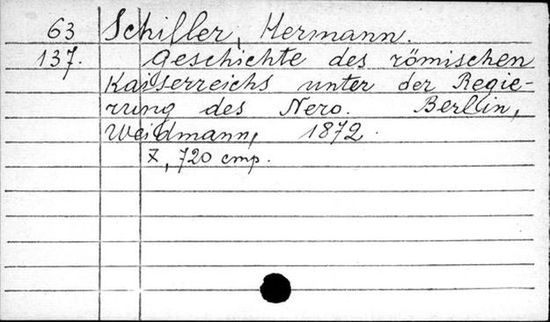 63 Schiller, Hermann.
137. Geschichte des römischen
Kaiserreichs unter der Regie-
rung des Nero. Berlin,
Weidmann, 1872.
X, 720 стр.